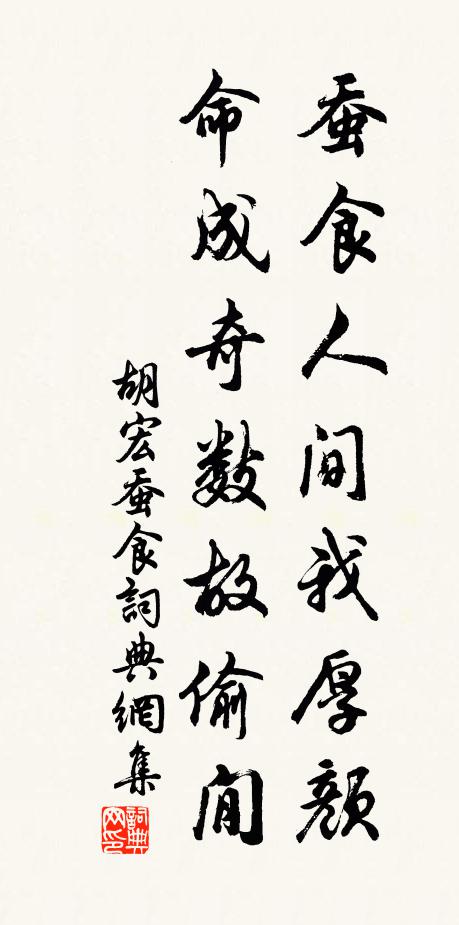 蚕食人间我厚颜
命成奇数故偷閒
胡宏蚕食詞典網集
詞典网印